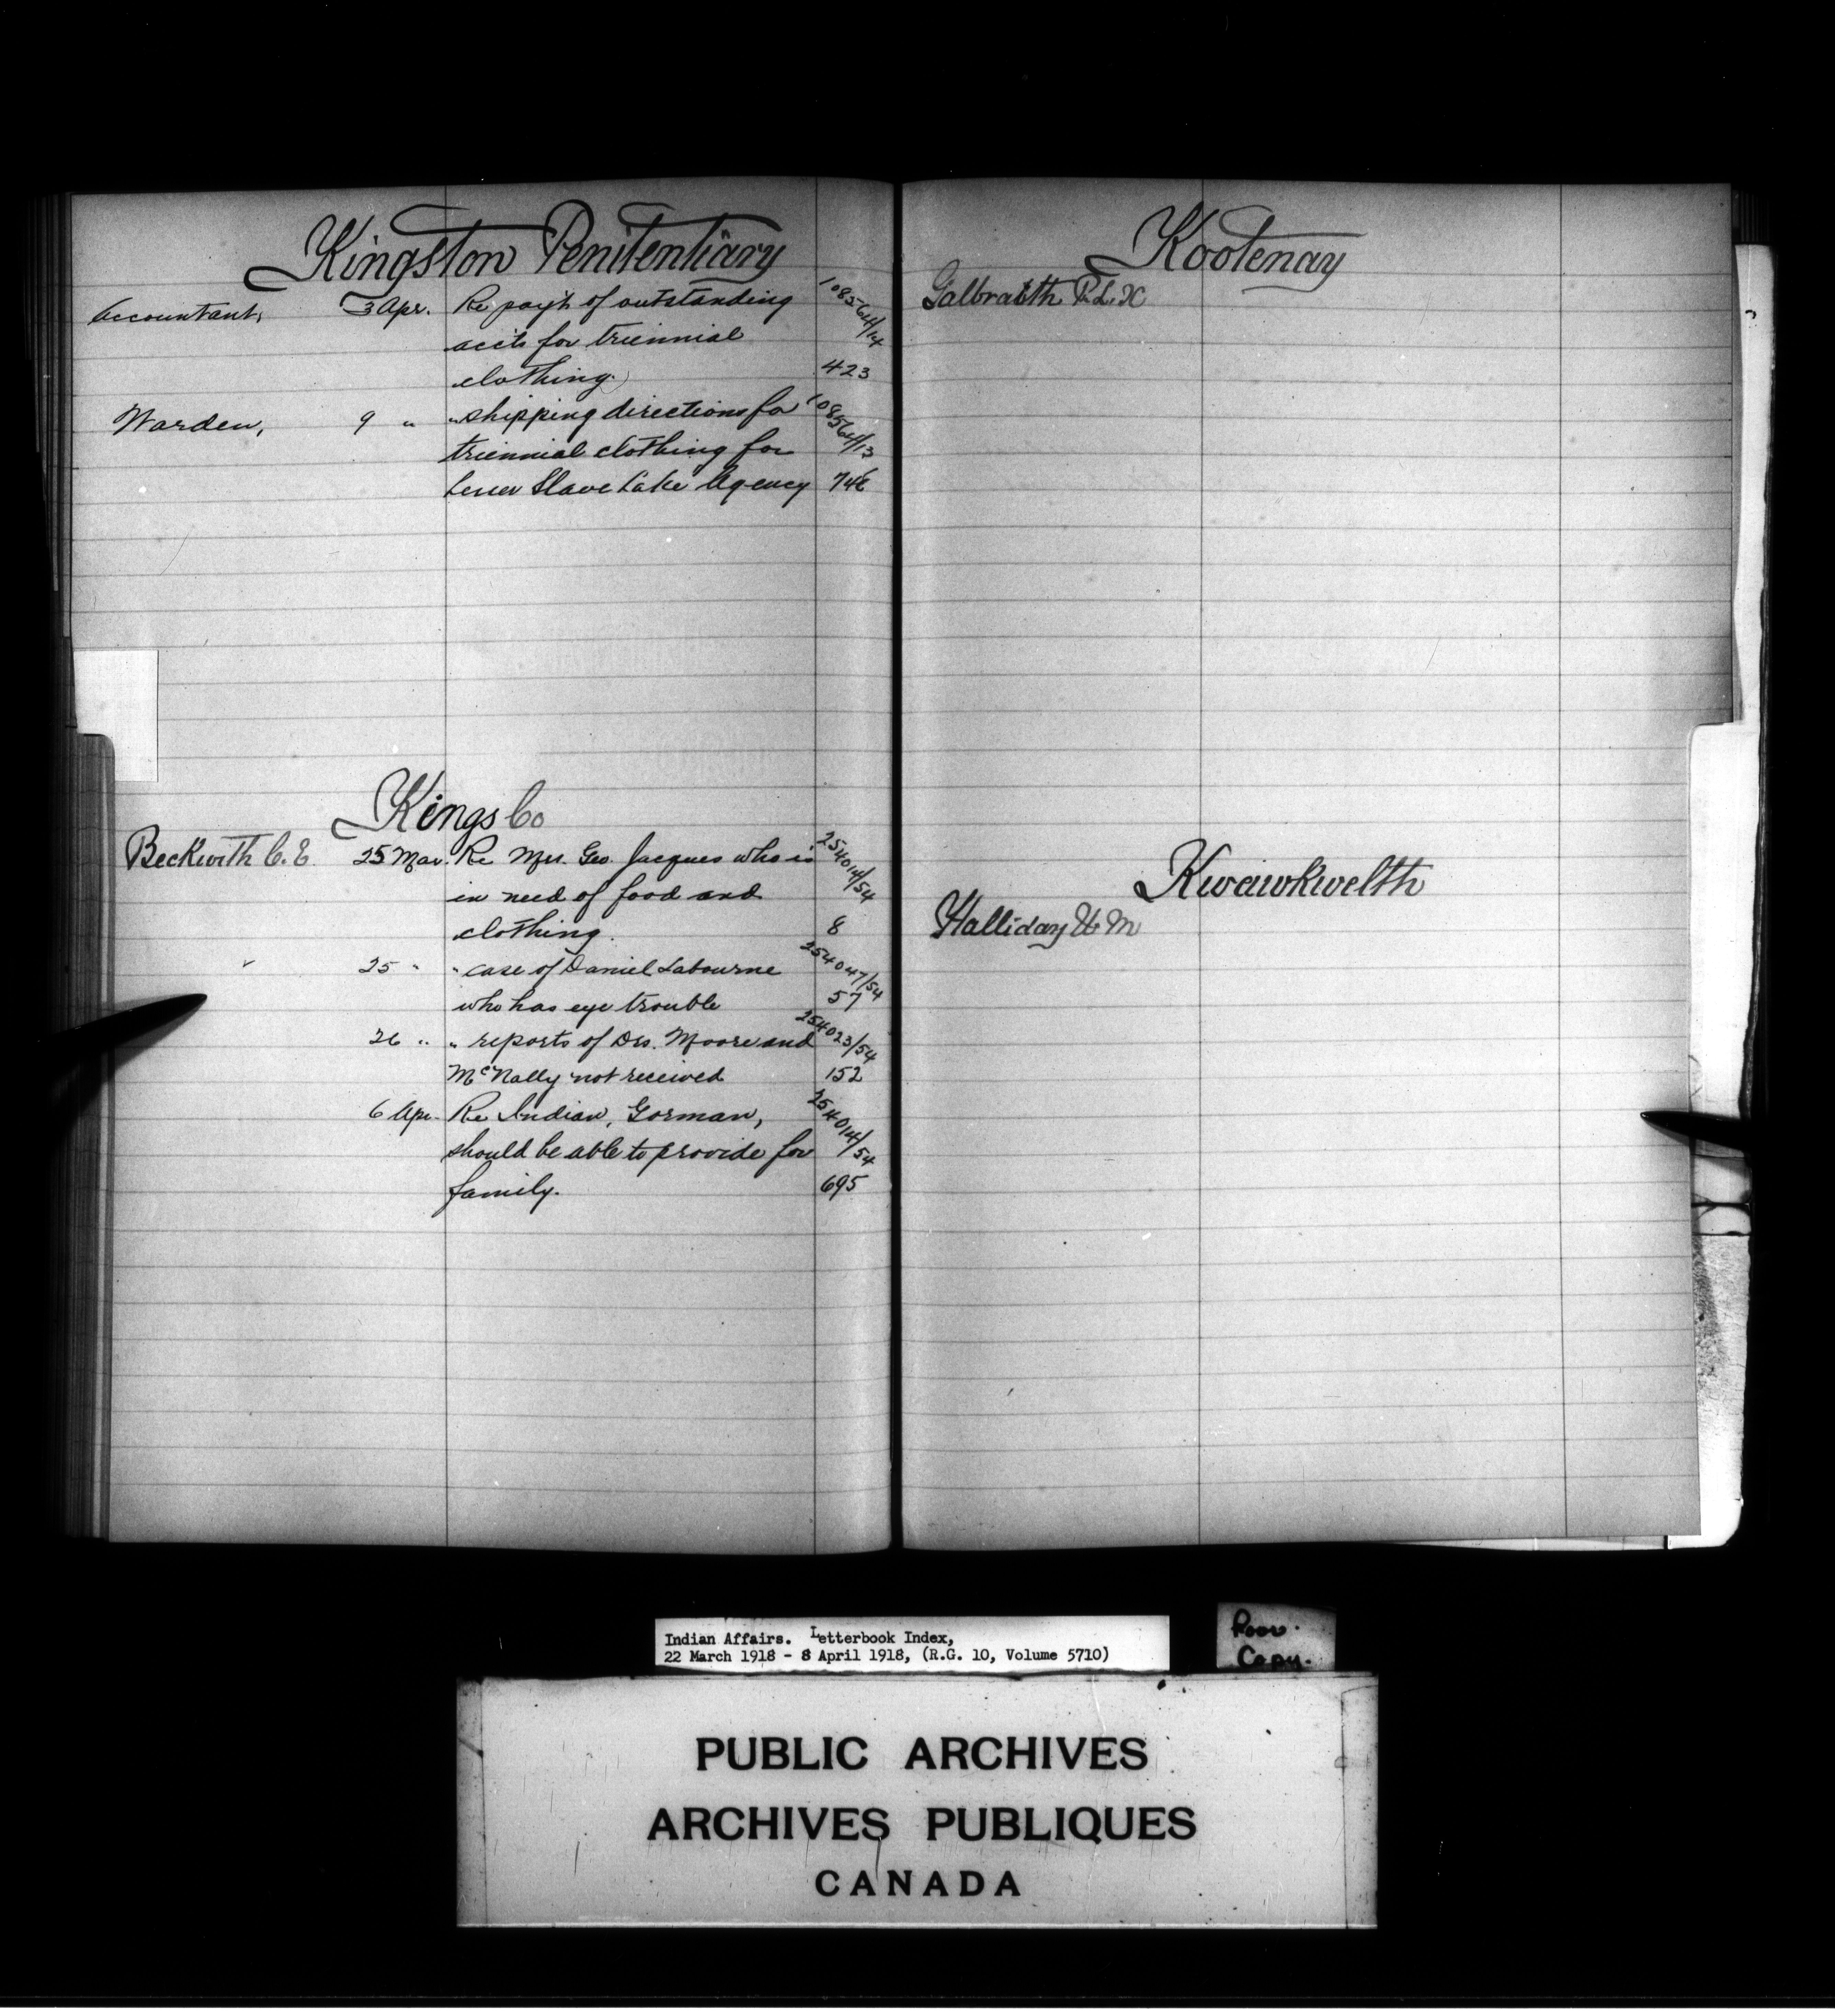 Kingston Penitentiary
Accountant, 3 Apr. Re pay't of outstanding 108564/14
acc'ts for triennial
clothing. 423
Warden, 9 " " shipping directions for 108564/13
triennial clothing for
Lesser Slave Lake Agency 746
Kings Co
Beckwith C. E. 25 Mar. Re Mrs. Geo. Jacques who is 254014/54
in need of food and
clothing. 8
" 25 " " case of Daniel Labourne 254047/54
who has eye trouble 57
26 " " reports of Drs. Moore and 254023/54
McNally not received 152
6 Apr. Re Indian, Gorman, 254014/54
should be able to provide for
family. 695
Kootenay
Galbraith R. L.
Kwawkwelth
Halliday W. M
Indian Affairs. Letterbook Index,
22 March 1918 - 8 April 1918, (R.G. 10, Volume 5710)
Poor.
Copy.
PUBLIC ARCHIVES
ARCHIVES PUBLIQUES
CANADA